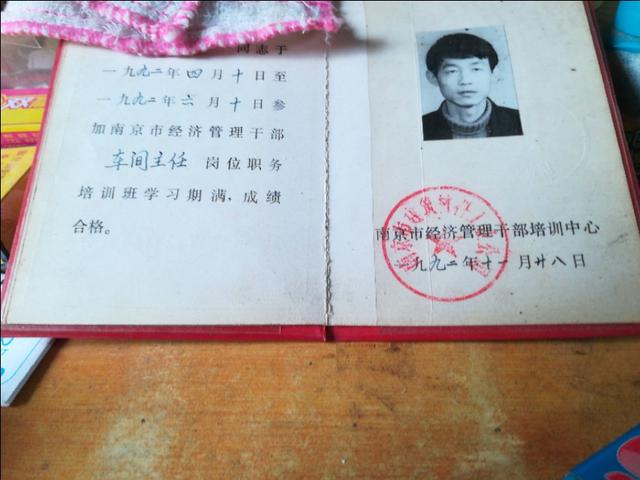 同志于
一九九二年四月十日至
一九九二年六月十日参
加南京市经济管理干部
车间主任 岗位职务
培训班学习期满，成绩
合格。
南京市经济管理干部培训中心
一九九二年十一月廿八日